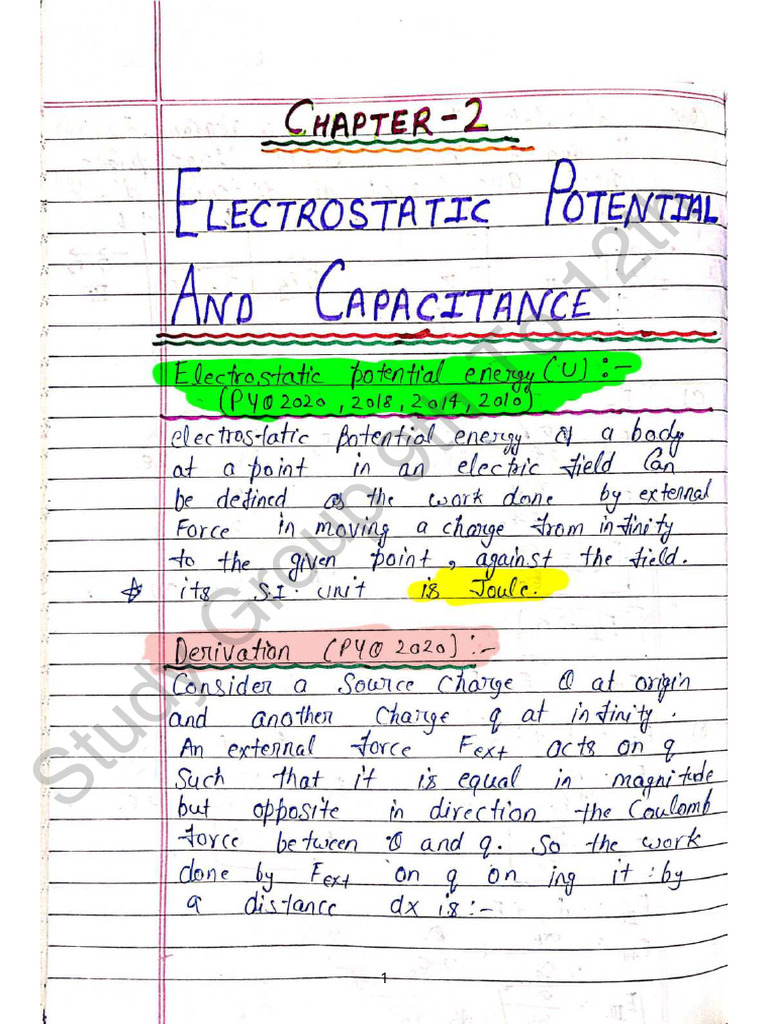 CHAPTER-2
ELECTROSTATIC POTENTIAL
AND CAPACITANCE
Electrostatic potential energy (U) :-
(PYQ 2020, 2018, 2014, 2010)
electrostatic potential energy of a body
at a point in an electric field Can
be defined as the work done by external
Force in moving a charge from infinity
to the given point, against the field.
☆ its S.I. unit is Joule.
Derivation (PYQ 2020) :-
Consider a Source Charge Q at origin
and another Charge q at infinity.
An external force Fext acts on q
Such that it is equal in magnitude
but opposite in direction the Coulomb
force between Q and q. So the work
done by Fext on q on ing it by
a distance dx is :-
1
Study Group 9th To 12th